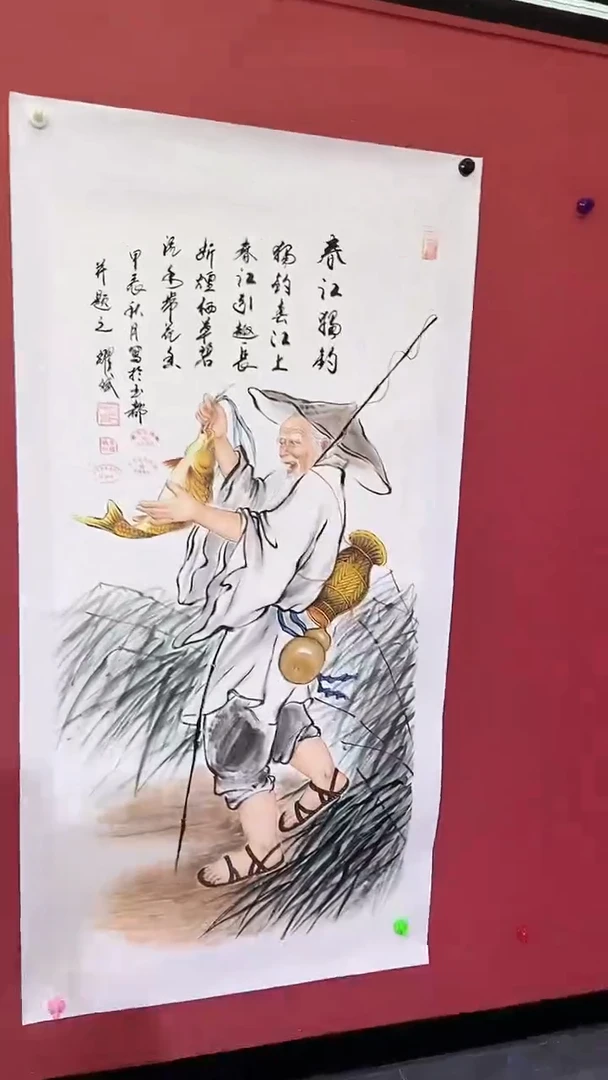 春江獨钓
獨钓春江上
春江引趣長
断煙栖草碧
流水带花香
甲辰秋月写於都
并题之